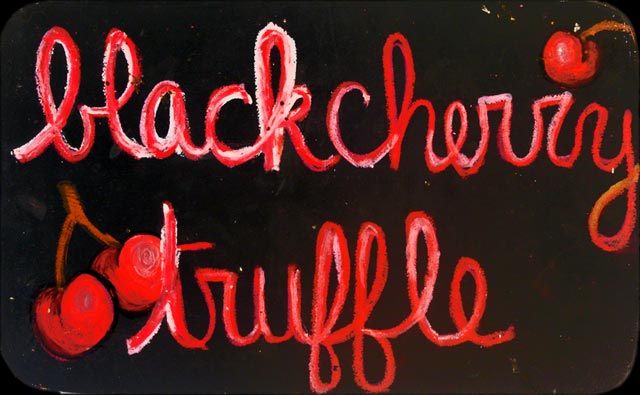 blackcherry
truffle